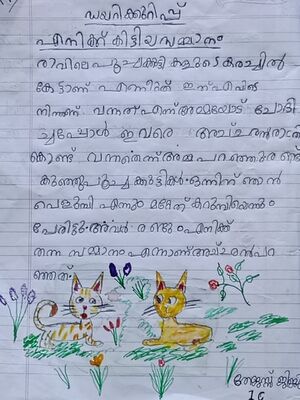 ഡയറിക്കുറിപ്പ്
എനിക്ക് കിട്ടിയ സമ്മാനം
രാവിലെ പൂച്ചക്കുട്ടികളുടെ കരച്ചിൽ
കേട്ടാണ് എണീറ്റത്
നിന്നാണ് വന്നത് എന്ന് അമ്മയോട് ചോദി
ച്ചപ്പോൾ ഇവരെ അച്ഛൻ
കൊണ്ട് വന്നതെന്ന് അമ്മ പറഞ്ഞു രണ്ട്
കുഞ്ഞുപൂച്ചക്കുട്ടികൾ ഒന്നിന് ഞാൻ
വെളുമ്പി എന്നും മറ്റേത് കറുമ്പിയെന്നും
പേരിട്ടു അവർ രണ്ടും എനിക്ക്
തന്ന സമ്മാനം എന്നാണ് അച്ഛൻ പറ
ഞ്ഞത്
തേജസ്സ്
1C